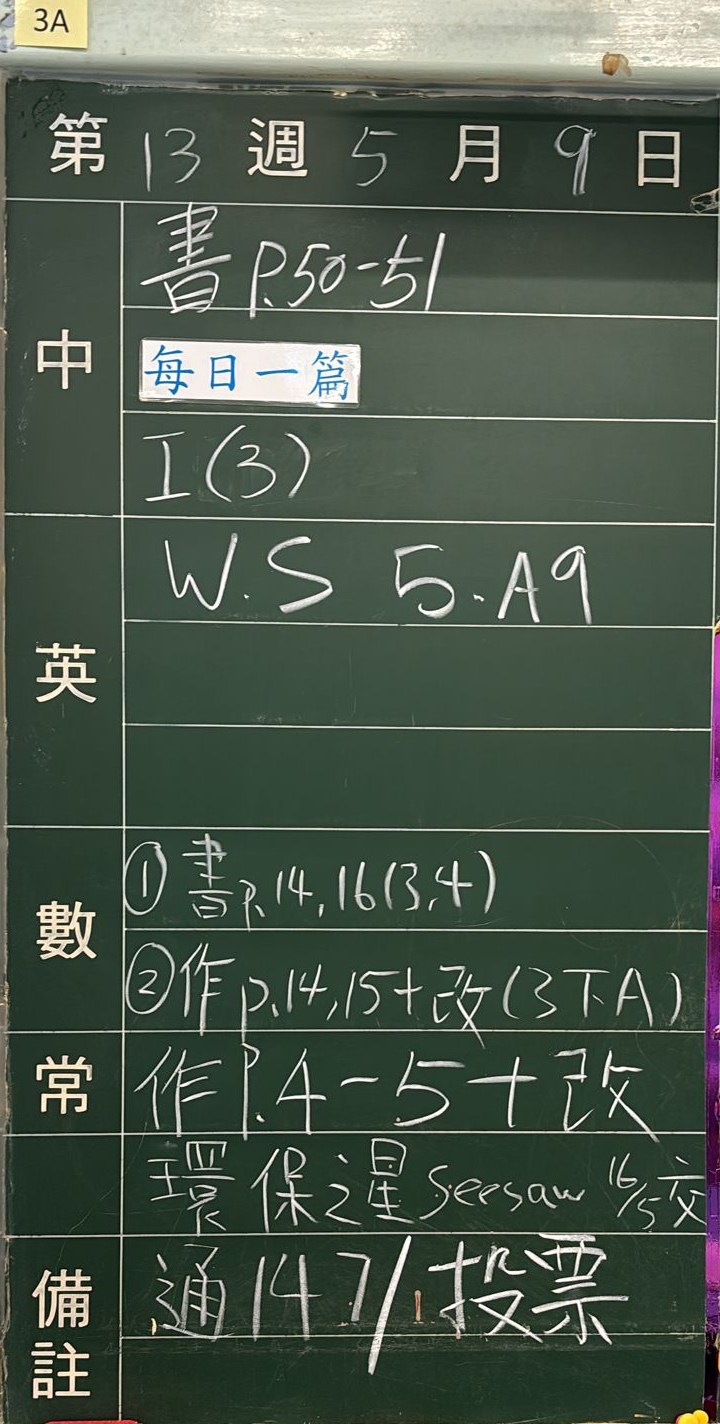 3A
第 13 週 5 月 9 日
中
書 P.50-51
每日一篇
I(3)
英
W.S 5.A9
數
① 書P.14,16(3,4)
② 作p.14,15+改(3下A)
常
作P.4-5+改
環保之星 seesaw 16/5交
備註
通147/投票